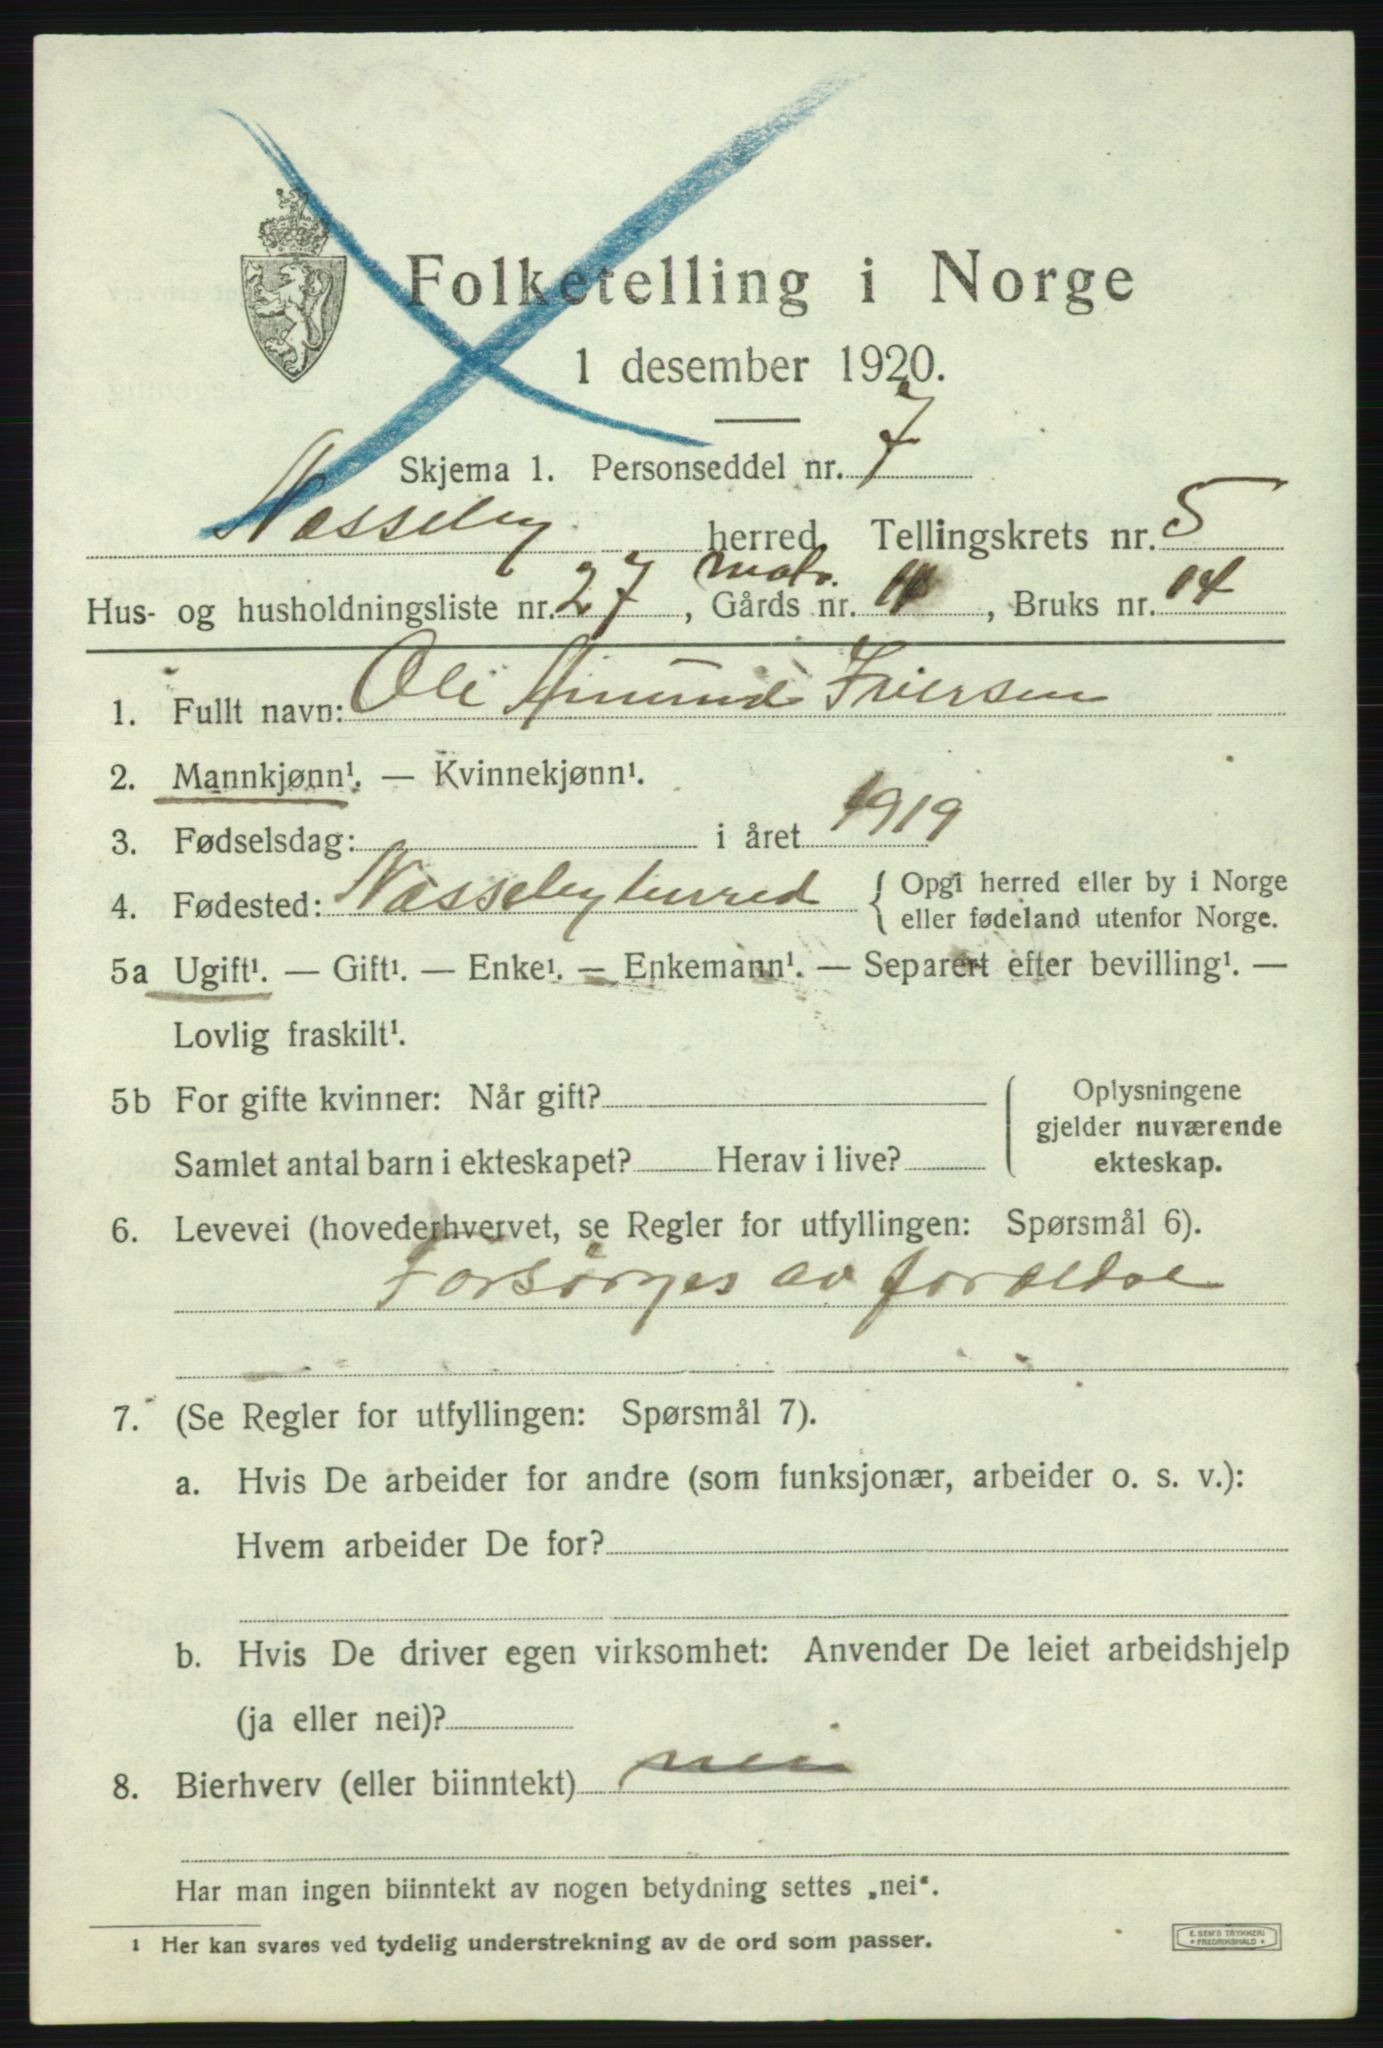 Folketelling i Norge
1 desember 1920.
Skjema 1. Personseddel nr. 7
Nesseby herred. Tellingskrets nr. 5
Hus- og husholdningsliste nr. 27, matr. Gårds nr. , Bruks nr. 14
1. Fullt navn: Ole Amund Iversen
2. Mannkjønn¹. — Kvinnekjønn¹.
3. Fødselsdag: i året 1919
4. Fødested: Nesseby herred { Opgi herred eller by i Norge
eller fødeland utenfor Norge.
5a Ugift¹. — Gift¹. — Enke¹. — Enkemann¹. — Separert efter bevilling¹. —
Lovlig fraskilt¹.
5b For gifte kvinner: Når gift?
Samlet antal barn i ekteskapet? Herav i live?
Oplysningene
gjelder nuværende
ekteskap.
6. Levevei (hovederhvervet, se Regler for utfyllingen: Spørsmål 6).
Forsørges av forældre
7. (Se Regler for utfyllingen: Spørsmål 7).
a. Hvis De arbeider for andre (som funksjonær, arbeider o. s. v.):
Hvem arbeider De for?
b. Hvis De driver egen virksomhet: Anvender De leiet arbeidshjelp
(ja eller nei)?
8. Bierhverv (eller biinntekt) nei
Har man ingen biinntekt av nogen betydning settes „nei“.
¹ Her kan svares ved tydelig understrekning av de ord som passer.
E. SEM'S TRYKKERI
• FREDRIKSHALD •